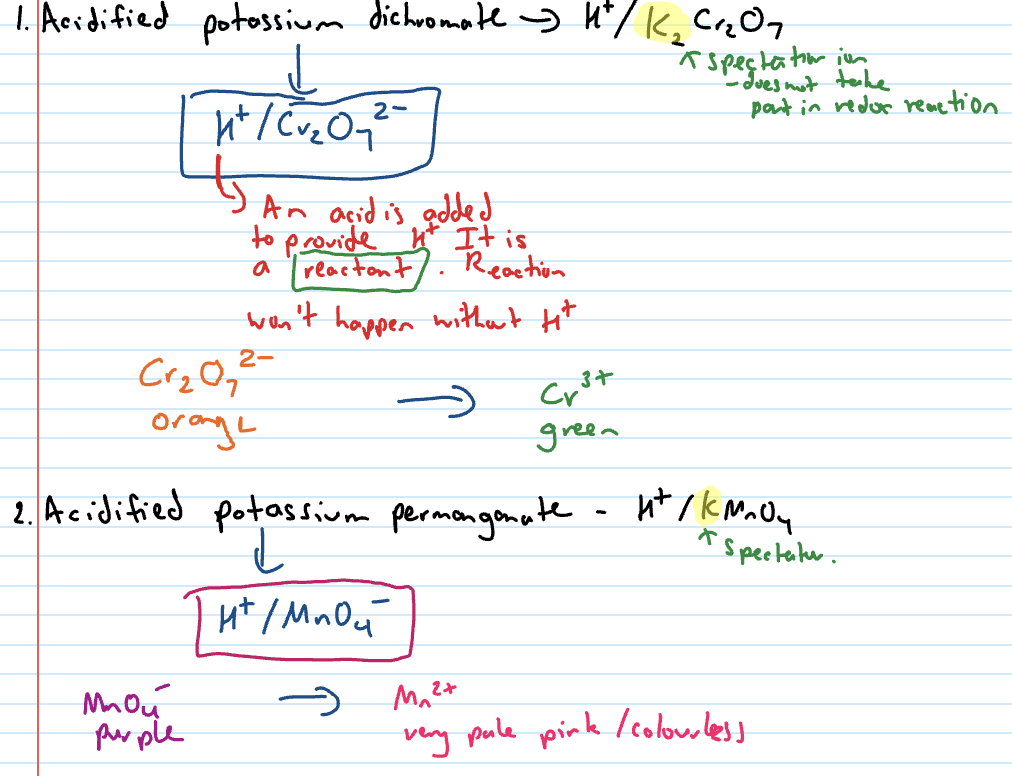 1. Acidified potassium dichromate → H⁺/ K₂Cr₂O₇
↑ spectator ion
- does not take
part in redox reaction
H⁺ / Cr₂O₇²⁻
An acid is added
to provide H⁺ It is
a reactant. Reaction
won't happen without H⁺
Cr₂O₇²⁻ → Cr³⁺
orange green
2. Acidified potassium permanganate - H⁺ / KMnO₄
↑ spectator.
H⁺ / MnO₄⁻
MnO₄⁻ → Mn²⁺
purple very pale pink / colourless